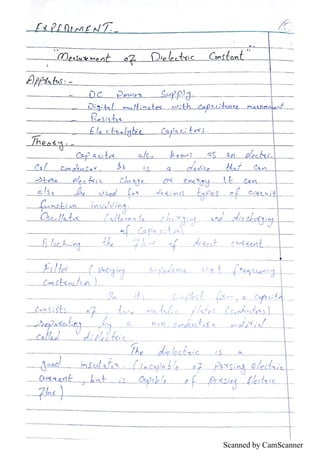 EXPERIMENT:-
"Measurement of Dielectric Constant"
Apparatus:-
- DC Power Supply.
- Digital multimeter with Capacitance measurement
- Resistor
- Electrolytic Capacitors.
Theory:-
Capacitor also known as an electri-
cal condenser. It is a device that can
store electric charge or energy. It can
also be used for various types of circuit
function involving.
Oscillator (alternate charging and discharging
of Capacitor)
Blocking the flow of direct current.
Filter (varying impedence frequency
Construction).
In its simplest form, a capacitor
consists of two metallic plates (conductors)
separating by a non conductor material
called dielectric
The dielectric is a
good insulator (Incapable of passing electric
current, but is Capable of passing electric
flux)
Scanned by CamScanner